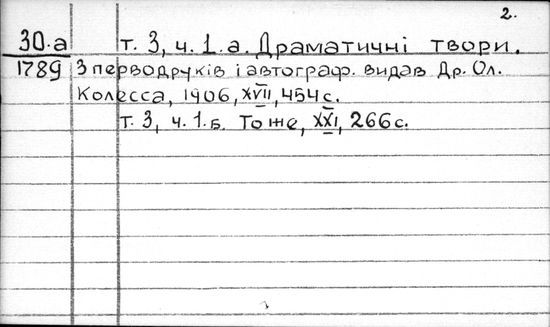 2.
30.а т. 3, ч. 1. а. Драматичні твори.
1789 З перводруків і автограф. видав Др. Ол.
Колесса, 1906, XVII, 454 с.
т. 3, ч. 1. б. Тоже, XXI, 266 с.